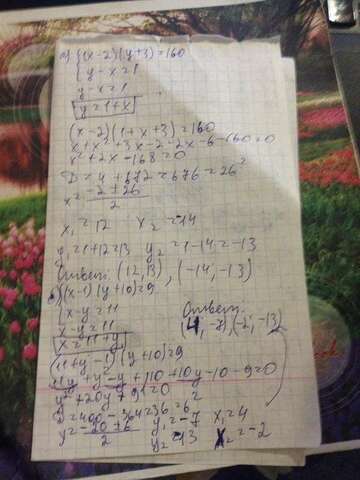 а) {(x-2)(y+3)=160
{y-x=1
y-x=1
y=1+x
(x-2)(1+x+3)=160
x+x²+3x-2-2x-6-160=0
x²+2x-168=0
D=4+672=676=26²
x=(-2±26)/2
x₁=12 x₂=-14
y₁=1+12=13 y₂=1-14=-13
Ответ: (12,13), (-14,-13)
{(x-1)(y+10)=9
{x-y=11
x-y=11
x=11+y
Ответ:
(4,-7),(-2,-13)
(11+y-1)(y+10)=9
11y+y²-y+110+10y-10-9=0
y²+20y+91=0
D=400-364=36=6²
y=(-20±6)/2 y₁=-7 x₁=4
y₂=-13 x₂=-2